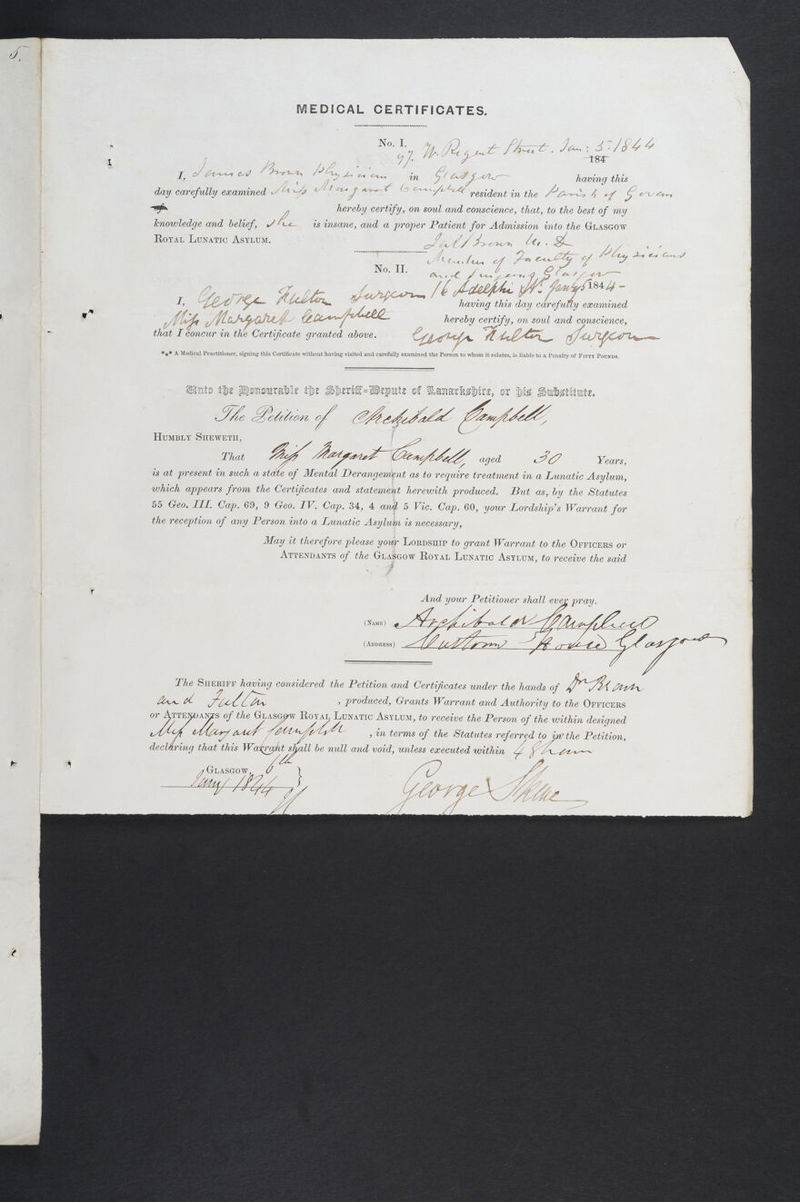 5.
MEDICAL CERTIFICATES.
No. I.
97. W. Regent Street. Jan: 5. 1844
184
I, James Brown Physician in Glasgow having this
day carefully examined Miss Margaret Campbell resident in the Parish of Govan
hereby certify, on soul and conscience, that, to the best of my
knowledge and belief, she is insane, and a proper Patient for Admission into the GLASGOW
ROYAL LUNATIC ASYLUM.
Brown M. D
Member of Faculty of Physicians
and Surgeons Glasgow
No. II.
16 Adelphi St. Jany 5 1844 -
I, George Fulton Surgeon having this day carefully examined
Miss Margaret Campbell hereby certify, on soul and conscience,
that I concur in the Certificate granted above. George Fulton Surgeon
*** A Medical Practitioner, signing this Certificate without having visited and carefully examined the Person to whom it relates, is liable to a Penalty of FIFTY POUNDS.
Unto the Honourable the Sheriff=Depute of Lanarkshire, or his Substitute.
The Petition of Archibald Campbell,
HUMBLY SHEWETH,
That Miss Margaret Campbell, aged 30 Years,
is at present in such a state of Mental Derangement as to require treatment in a Lunatic Asylum,
which appears from the Certificates and statement herewith produced. But as, by the Statutes
55 Geo. III. Cap. 69, 9 Geo. IV. Cap. 34, 4 and 5 Vic. Cap. 60, your Lordship's Warrant for
the reception of any Person into a Lunatic Asylum is necessary,
May it therefore please your LORDSHIP to grant Warrant to the OFFICERS or
ATTENDANTS of the GLASGOW ROYAL LUNATIC ASYLUM, to receive the said
And your Petitioner shall ever pray.
(NAME) Archibald Campbell
(ADDRESS) Custom House Glasgow
The SHERIFF having considered the Petition and Certificates under the hands of Dr Brown
and Fulton , produced, Grants Warrant and Authority to the OFFICERS
or ATTENDANTS of the GLASGOW ROYAL LUNATIC ASYLUM, to receive the Person of the within designed
Miss Margaret Campbell , in terms of the Statutes referred to in the Petition,
declaring that this Warrant shall be null and void, unless executed within 48 hours
GLASGOW, 6th
Jany 1844
George Skene